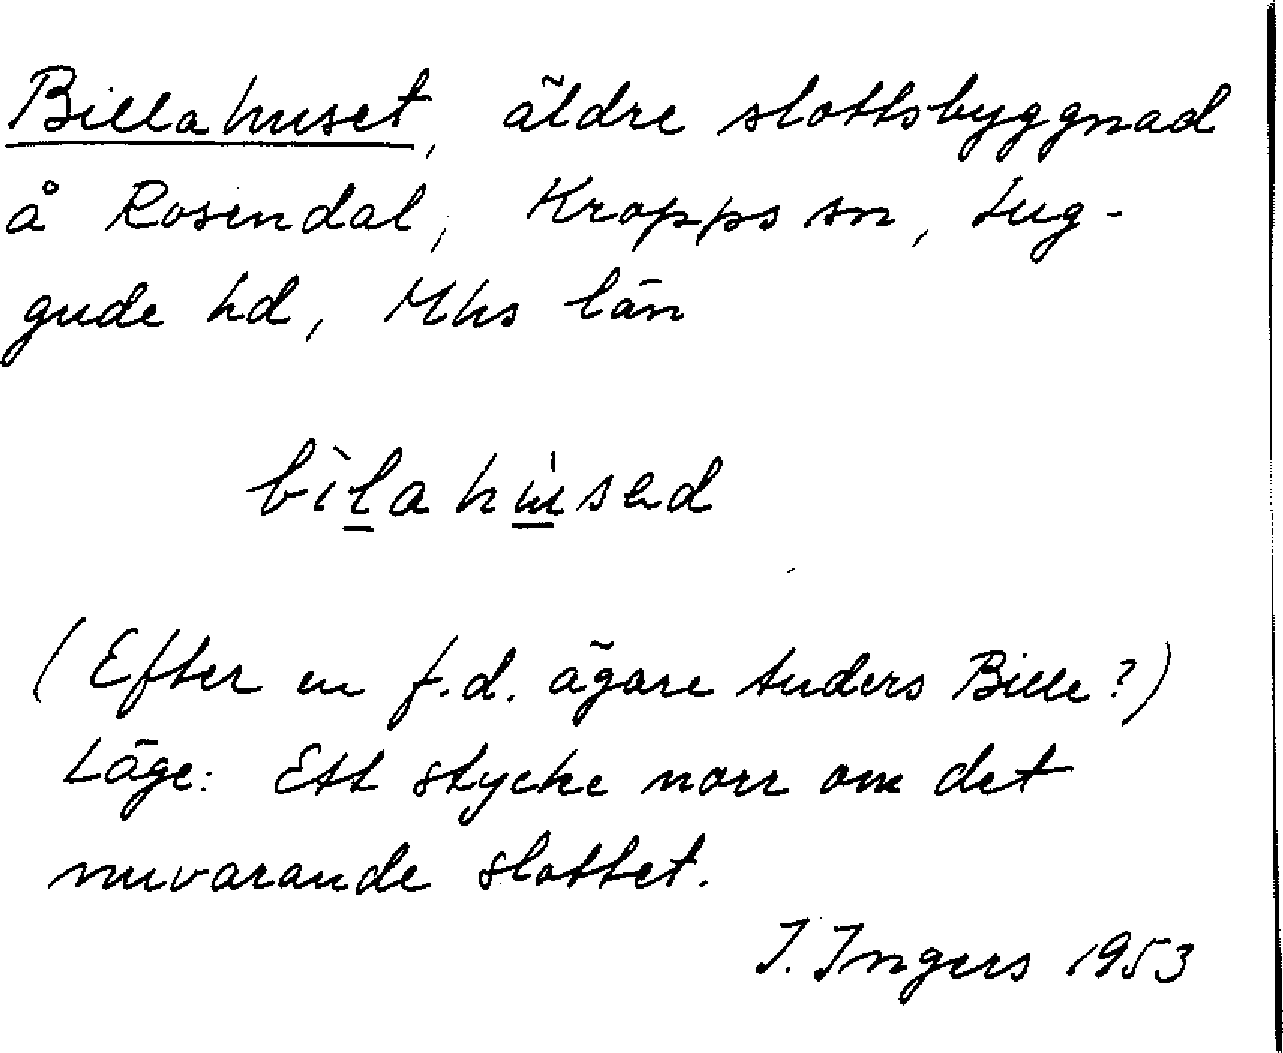 Billahuset, äldre slottsbyggnad
å Rosendal, Kropps sn, Lug-
gude hd, Mhs län
bìlahúsəd
(Efter en f.d. ägare Anders Bille?)
Läge: Ett stycke norr om det
nuvarande slottet.
I. Ingers 1953